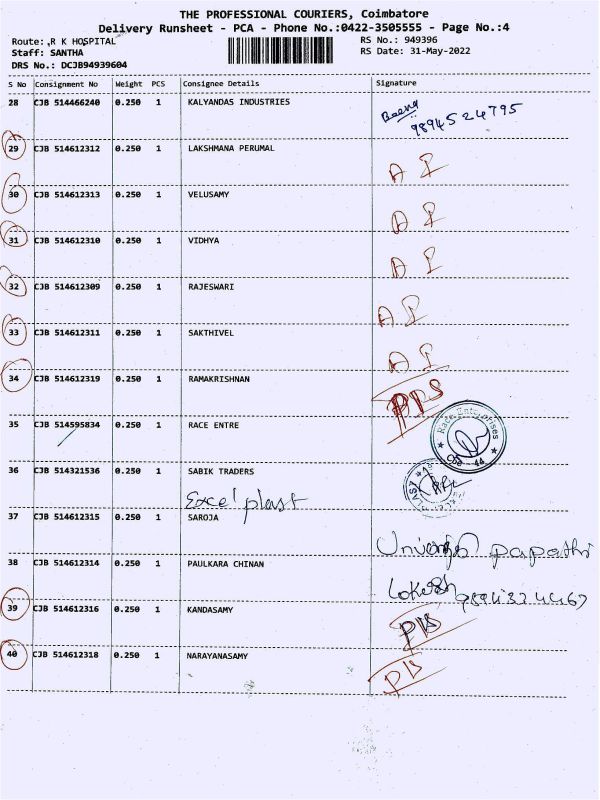 THE PROFESSIONAL COURIERS, Coimbatore
Delivery Runsheet - PCA - Phone No.:0422-3505555 - Page No.:4
Route: ,R K HOSPITAL RS No.: 949396
Staff: SANTHA RS Date: 31-May-2022
DRS No.: DCJB94939604
S No Consignment No Weight PCS Consignee Details Signature
28 CJB 514466240 0.250 1 KALYANDAS INDUSTRIES Beena
9894524795
29 CJB 514612312 0.250 1 LAKSHMANA PERUMAL
30 CJB 514612313 0.250 1 VELUSAMY
31 CJB 514612310 0.250 1 VIDHYA
32 CJB 514612309 0.250 1 RAJESWARI
33 CJB 514612311 0.250 1 SAKTHIVEL
34 CJB 514612319 0.250 1 RAMAKRISHNAN
35 CJB 514595834 0.250 1 RACE ENTRE Race Enterprises
36 CJB 514321536 0.250 1 SABIK TRADERS
Excel plast
37 CJB 514612315 0.250 1 SAROJA papathi
38 CJB 514612314 0.250 1 PAULKARA CHINAN Lokesh
39 CJB 514612316 0.250 1 KANDASAMY
40 CJB 514612318 0.250 1 NARAYANASAMY